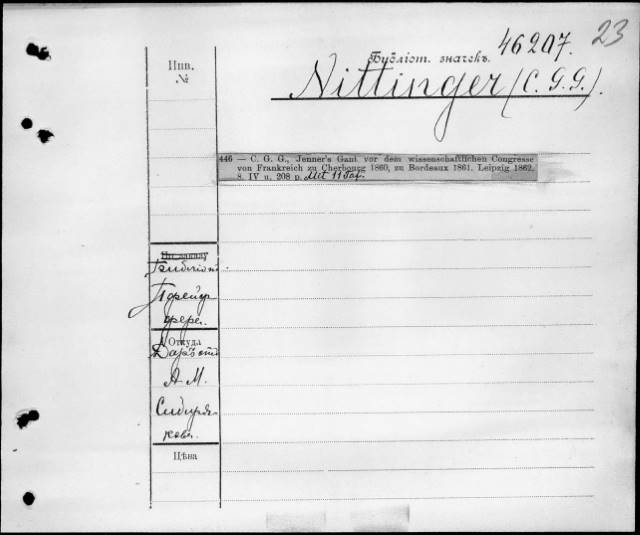 46207. 23
Инв.
№
Библіот. значекъ.
Nittinger (C. G. G.).
446 — C. G. G., Jenner's Gant vor dem wissenschaftlichen Congresse
von Frankreich zu Cherbourg 1860, zu Bordeaux 1861. Leipzig 1862.
8. IV u. 208 p. Mit 11 Taf.
По заказу
Библіот.
Пфейф-
фера.
Откуда
Даръ отъ
А. М.
Сибиря-
кова.
Цѣна